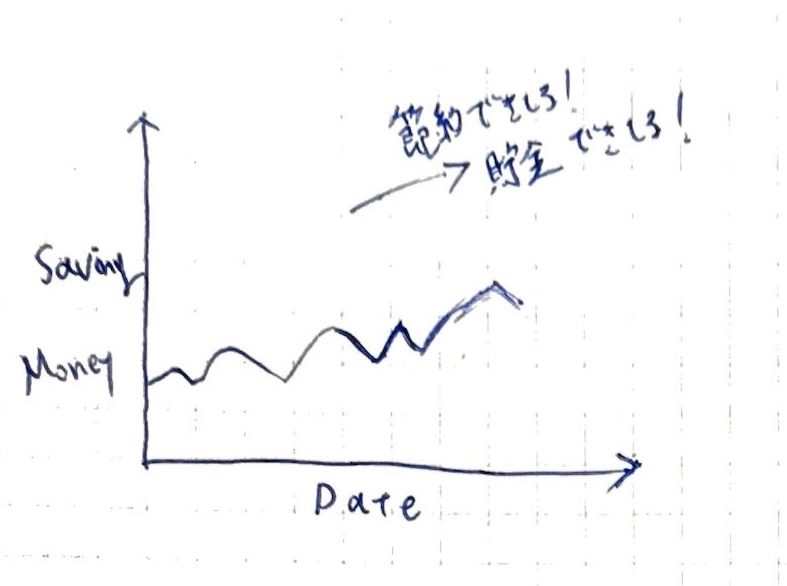 節約できしろ!
貯金できしろ!
Saving
Money
Date